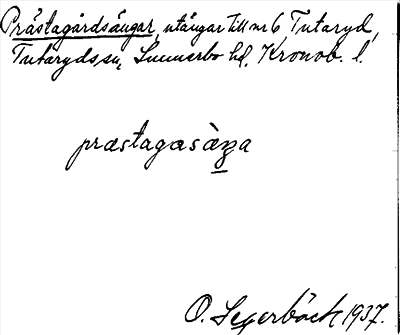 Prästagårdsängar, utängar till nr 6 Tutaryd,
Tutaryds sn, Sunnerbo hd, Kronob. l.
præstagasàŋa
O. Segerbäck 1937.